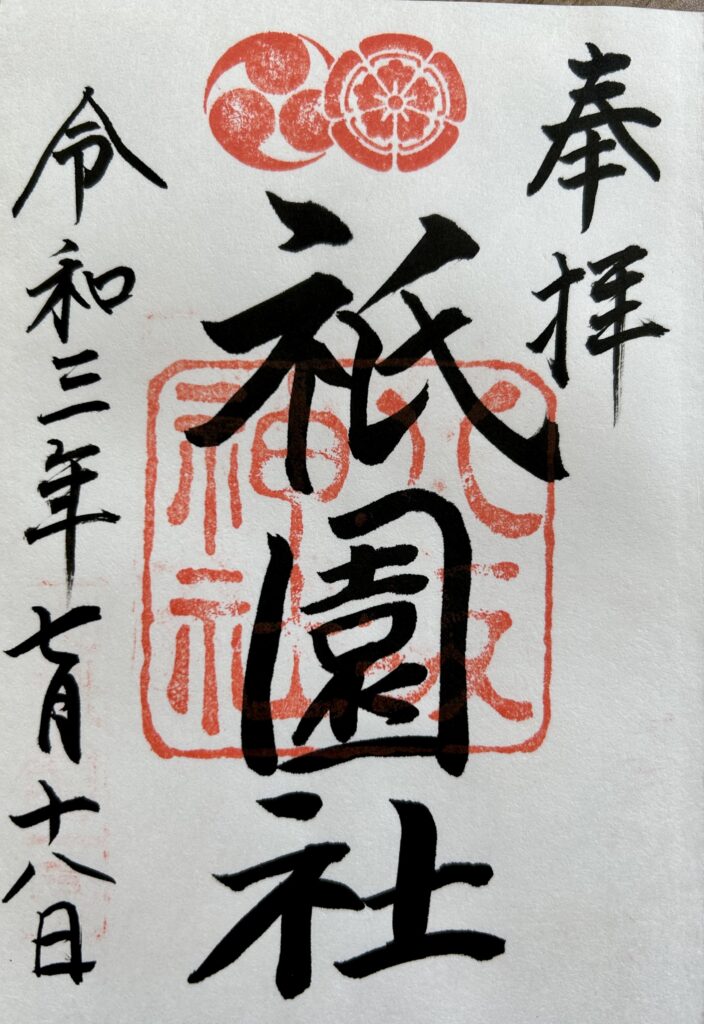 奉拝
八坂
神社
祇園社
令和三年七月十八日